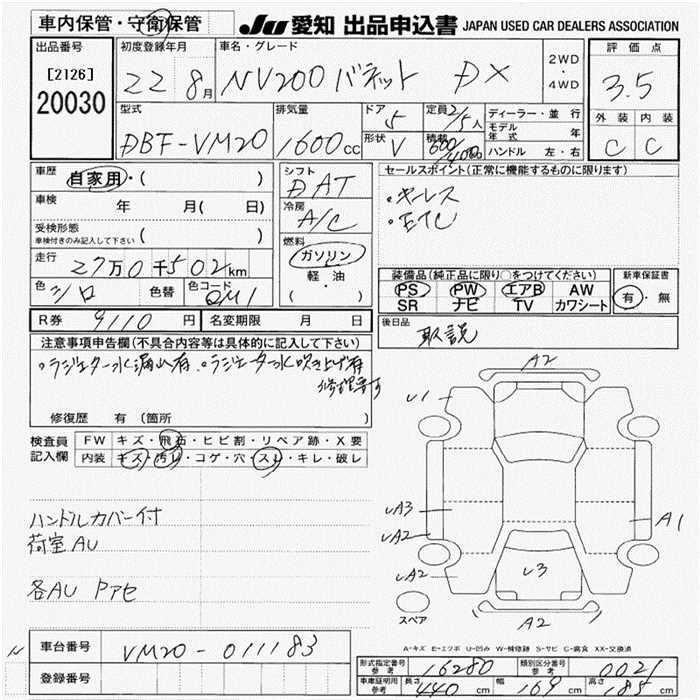 車内保管・守衛保管
JU 愛知 出品申込書 JAPAN USED CAR DEALERS ASSOCIATION
出品番号
[2126]
20030
初度登録年月
22 8月
車名・グレード
NV200 バネット DX
2WD
・
4WD
評価点
3.5
外装 内装
C C
型式
DBF-VM20
排気量
1600cc
ドア
5
形状
V
定員
2/5人
積載
600/400kg
ディーラー・並行
モデル年式 年
ハンドル 左・右
車歴
自家用・( )
車検
年 月( 日)
受検形態
車検付きのみ記入して下さい
( )
走行
27万0千502km
色
シロ
色替
色コード
QM1
シフト
DAT
冷房
A/C
燃料
ガソリン
軽・油
( )
セールスポイント(正常に機能するものに限ります)
・キーレス
・ETC
装備品(純正品に限り○をつけてください)
PS PW エアB AW
SR ナビ TV カワシート
新車保証書
有・無
R券 9110円
名変期限 月 日
後日品
取説
注意事項申告欄(不具合内容等は具体的に記入して下さい)
・ラジエター水漏れ有 ・ラジエター水吹き上げ有
修理要す
修復歴 有 (箇所 )
検査員
記入欄
FW キズ・飛石・ヒビ割・リペア跡・X要
内装 キズ・汚レ・コゲ・穴・スレ・キレ・破レ
ハンドルカバー付
荷室AU
各AU Pアセ
A2
U1
UA3
UA2
UA2
A1
U3
A2
スペア
A-キズ E-エクボ U-凹み W-補修跡 S-サビ C-腐食 XX-交換済
N
車台番号
VM20-011183
登録番号
形式指定番号
参考
16280
類別区分番号
参考
0021
車庫証明用
参考
長さ
440 cm
幅
169 cm
高さ
185 cm